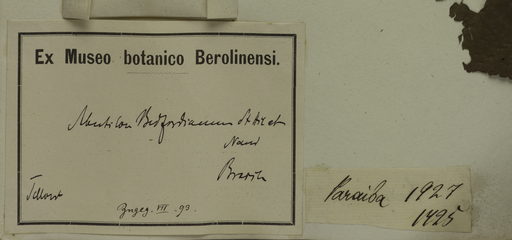 Ex Museo botanico Berolinensi.
Abutilon Bedfordianum St Hil et
Naud
Brasil
Zugeg. VII. 93.
Paraiba 1927
1425